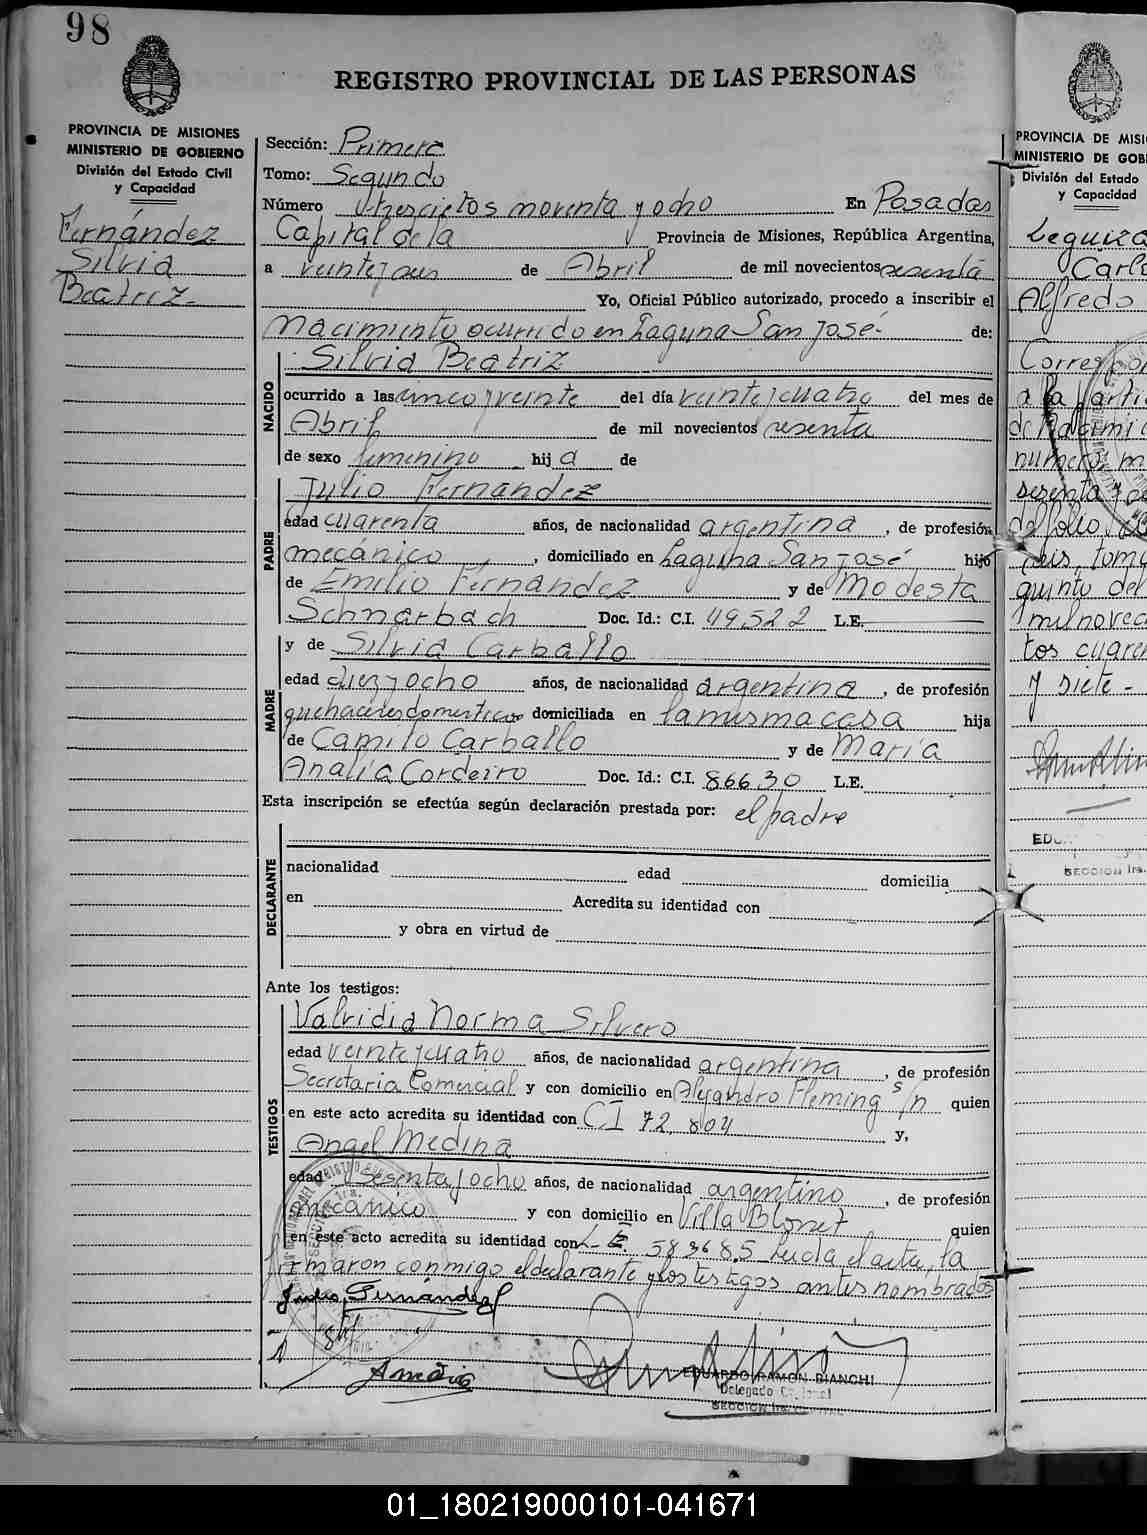 98
REGISTRO PROVINCIAL DE LAS PERSONAS
PROVINCIA DE MISIONES
MINISTERIO DE GOBIERNO
División del Estado Civil
y Capacidad
Fernández
Silvia
Beatriz.-
Sección: Primera
Tomo: Segundo
Número trescietos noventa y ocho En Posadas
Capital de la Provincia de Misiones, República Argentina,
a veinte y seis de Abril de mil novecientos sesenta
Yo, Oficial Público autorizado, procedo a inscribir el
nacimiento ocurrido en Laguna San José.- de:
NACIDO
Silvia Beatriz
ocurrido a las cinco y veinte del día veinte y cuatro del mes de
Abril de mil novecientos sesenta
de sexo femenino hij a de
PADRE
Julio Fernandez
edad cuarenta años, de nacionalidad argentina, de profesión
mecánico, domiciliado en Laguna San José hijo
de Emilio Fernandez y de Modesta
Schnarbach Doc. Id.: C.I. 49.522 L.E.
MADRE
y de Silvia Carballo
edad diez y ocho años, de nacionalidad argentina, de profesión
quehaceres domesticos domiciliada en la misma casa hija
de Camilo Carballo y de María
Analía Cordeiro Doc. Id.: C.I. 86630 L.E.
Esta inscripción se efectúa según declaración prestada por: el padre
DECLARANTE
nacionalidad edad domicilia
en Acredita su identidad con
y obra en virtud de
Ante los testigos:
TESTIGOS
Valvidia Norma Silvero
edad veinte y cuatro años, de nacionalidad argentina, de profesión
Secretaria Comercial y con domicilio en Alejandro Fleming s/n quien
en este acto acredita su identidad con CI 72.804 y,
Angel Medina
edad sesenta y ocho años, de nacionalidad argentino, de profesión
mecánico y con domicilio en Villa Blosset quien
en este acto acredita su identidad con L.E. 589685 Leida el acta, la
firmaron conmigo el declarante y los testigos antes nombrados
Julio Fernández
A Medina
EDUARDO RAMON BIANCHI
Delegado
SECCION 1ra. CAPITAL
PROVINCIA DE MISI
MINISTERIO DE GOB
División del Estado
y Capacidad
Leguiza
Carlo
Alfredo
Correspon
a la parti
de Nacimie
numero, m
sesenta y
del folio,
seis, tomo
quinto del
mil novec
tos cuaren
y siete -
EDU
SECCION 1ra.
01_180219000101-041671